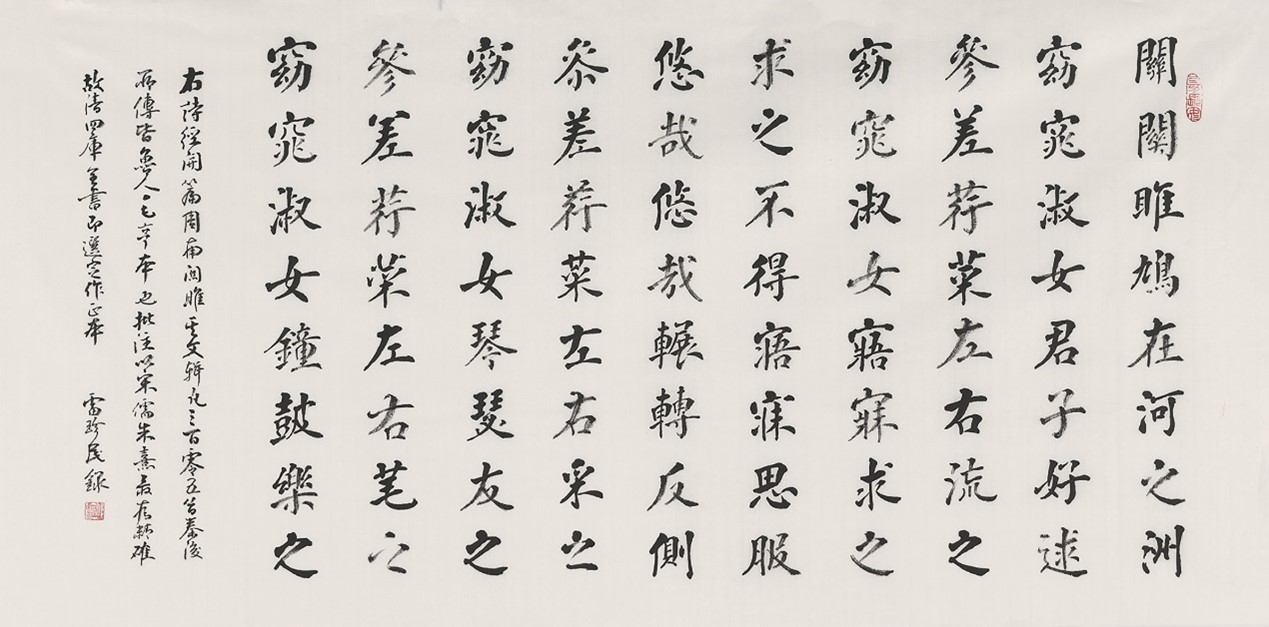 關關雎鳩在河之洲
窈窕淑女君子好逑
參差荇菜左右流之
窈窕淑女寤寐求之
求之不得寤寐思服
悠哉悠哉輾轉反側
參差荇菜左右采之
窈窕淑女琴瑟友之
參差荇菜左右芼之
窈窕淑女鐘鼓樂之
右詩經開篇周南關雎其文輯凡三百零五首秦後
所傳皆魯人毛亨本也批注以宋儒朱熹最爲精確
故清四庫全書即選定作正本
雷珍民錄